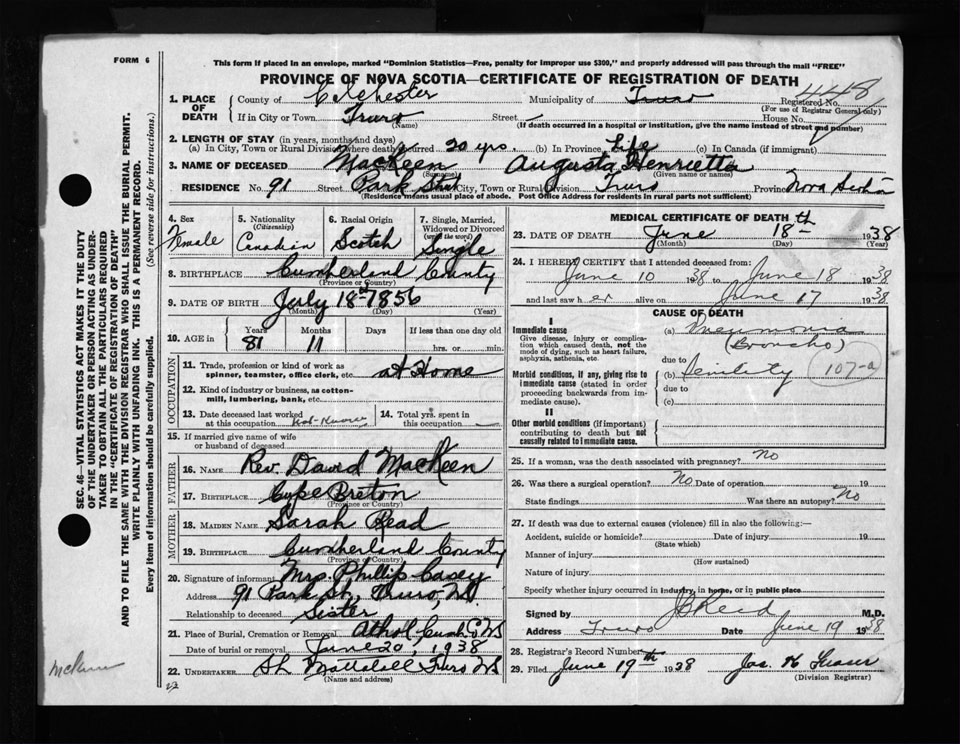 FORM 6
This form if placed in an envelope, marked "Dominion Statistics—Free, penalty for improper use $300," and properly addressed will pass through the mail "FREE"
PROVINCE OF NOVA SCOTIA—CERTIFICATE OF REGISTRATION OF DEATH
448
1. PLACE OF DEATH
County of Colchester Municipality of Truro Registered No.
(For use of Registrar General only)
If in City or Town Truro Street House No.
(Name) (If death occurred in a hospital or institution, give the name instead of street and number)
2. LENGTH OF STAY (in years, months and days)
(a) In City, Town or Rural Division where death occurred 20 yrs. (b) In Province Life (c) In Canada (if immigrant)
3. NAME OF DECEASED MacKeen Augusta Henrietta
(Surname) (Given name or names)
RESIDENCE No. 91 Street Park City, Town or Rural Division Truro Province Nova Scotia
(Residence means usual place of abode. Post Office Address for residents in rural parts not sufficient)
4. Sex Female
5. Nationality (Citizenship) Canadian
6. Racial Origin Scotch
7. Single, Married, Widowed or Divorced (write the word) Single
8. BIRTHPLACE Cumberland County
(Province or Country)
9. DATE OF BIRTH July 18th 1856
(Month) (Day) (Year)
10. AGE in Years 81 Months 11 Days If less than one day old hrs. or min.
OCCUPATION
11. Trade, profession or kind of work as spinner, teamster, office clerk, etc. at Home
12. Kind of industry or business, as cotton-mill, lumbering, bank, etc.
13. Date deceased last worked at this occupation
14. Total yrs. spent in this occupation
15. If married give name of wife or husband of deceased
FATHER
16. NAME Rev. David MacKeen
17. BIRTHPLACE Cape Breton
(Province or Country)
MOTHER
18. MAIDEN NAME Sarah Read
19. BIRTHPLACE Cumberland County
(Province or Country)
20. Signature of informant Mrs. Phillip
Address 91 Park St., Truro, N.S.
Relationship to deceased Sister
21. Place of Burial, Cremation or Removal Athol Cumb. Co NS
Date of burial or removal June 20, 1938
22. UNDERTAKER Truro NS
(Name and address)
MEDICAL CERTIFICATE OF DEATH
23. DATE OF DEATH June 18th 1938
(Month) (Day) (Year)
24. I HEREBY CERTIFY that I attended deceased from:
June 10 1938 to June 18 1938
and last saw her alive on June 17 1938
CAUSE OF DEATH
I
Immediate cause
Give disease, injury or complication which caused death, not the mode of dying, such as heart failure, asphyxia, asthenia, etc.
(a) Pneumonia
(Broncho)
due to
Morbid conditions, if any, giving rise to immediate cause (stated in order proceeding backwards from immediate cause).
(b) Senility 107-a
due to
(c)
II
Other morbid conditions (if important) contributing to death but not causally related to immediate cause.
25. If a woman, was the death associated with pregnancy? No
26. Was there a surgical operation? No Date of operation 19
State findings Was there an autopsy? No
27. If death was due to external causes (violence) fill in also the following:—
Accident, suicide or homicide? Date of injury 19
(State which)
Manner of injury
(How sustained)
Nature of injury
Specify whether injury occurred in industry, in home, or in public place
Signed by J B Reid M.D.
Address Truro Date June 19 1938
28. Registrar's Record Number
29. Filed June 19th 1938 Jas. H Fraser
(Division Registrar)
SEC. 46—VITAL STATISTICS ACT MAKES IT THE DUTY
OF THE UNDERTAKER OR PERSON ACTING AS UNDER-
TAKER TO OBTAIN ALL THE PARTICULARS REQUIRED
IN THE "CERTIFICATE OF REGISTRATION OF DEATH"
AND TO FILE THE SAME WITH THE DIVISION REGISTRAR WHO SHALL ISSUE THE BURIAL PERMIT.
WRITE PLAINLY WITH UNFADING INK. THIS IS A PERMANENT RECORD.
Every item of information should be carefully supplied. (See reverse side for instructions.)